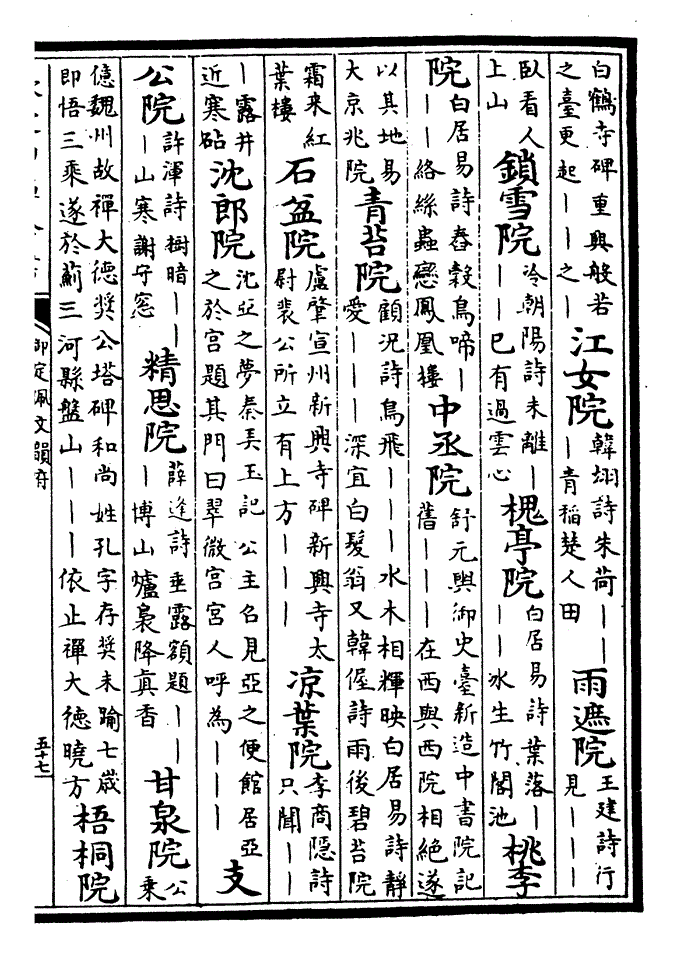 白鶴寺碑重興般若
之臺更起丨丨之丨
江女院
韓翃詩朱荷丨丨
丨青稻楚人田
雨遮院
王建詩行
見丨丨丨
臥看人
上山
鎖雪院
冷朝陽詩未離丨
丨丨已有過雲心
槐亭院
白居易詩葉落丨
丨丨氷生竹閣池
桃李
院
白居易詩舂穀鳥啼丨
丨丨絡絲蟲戀鳳凰樓
中丞院
舒元輿御史臺新造中書院記
舊丨丨丨在西與西院相絶遂
以其地易
大京兆院
青苔院
顧況詩鳥飛丨丨丨水木相輝映白居易詩靜
愛丨丨丨深宜白髮翁又韓偓詩雨後碧苔院
霜來紅
葉樓
石盆院
盧肇宣州新興寺碑新興寺太
尉裴公所立有上方丨丨丨
凉葉院
李商隱詩
只聞丨丨
丨露井
近寒砧
沈郎院
沈亞之夢秦弄玉記公主召見亞之便館居亞
之於宮題其門曰翠微宮宮人呼為丨丨丨
支
公院
許渾詩樹暗丨丨
丨山寒謝守窓
精思院
薛逢詩垂露額題丨丨
丨博山爐裊降真香
甘泉院
公
乗
億魏州故禪大德奬公塔碑和尚姓孔字存奬未踰七歲
即悟三乘遂於薊三河縣盤山丨丨丨依止禪大德曉方
梧桐院
御定佩文韻府
五十七